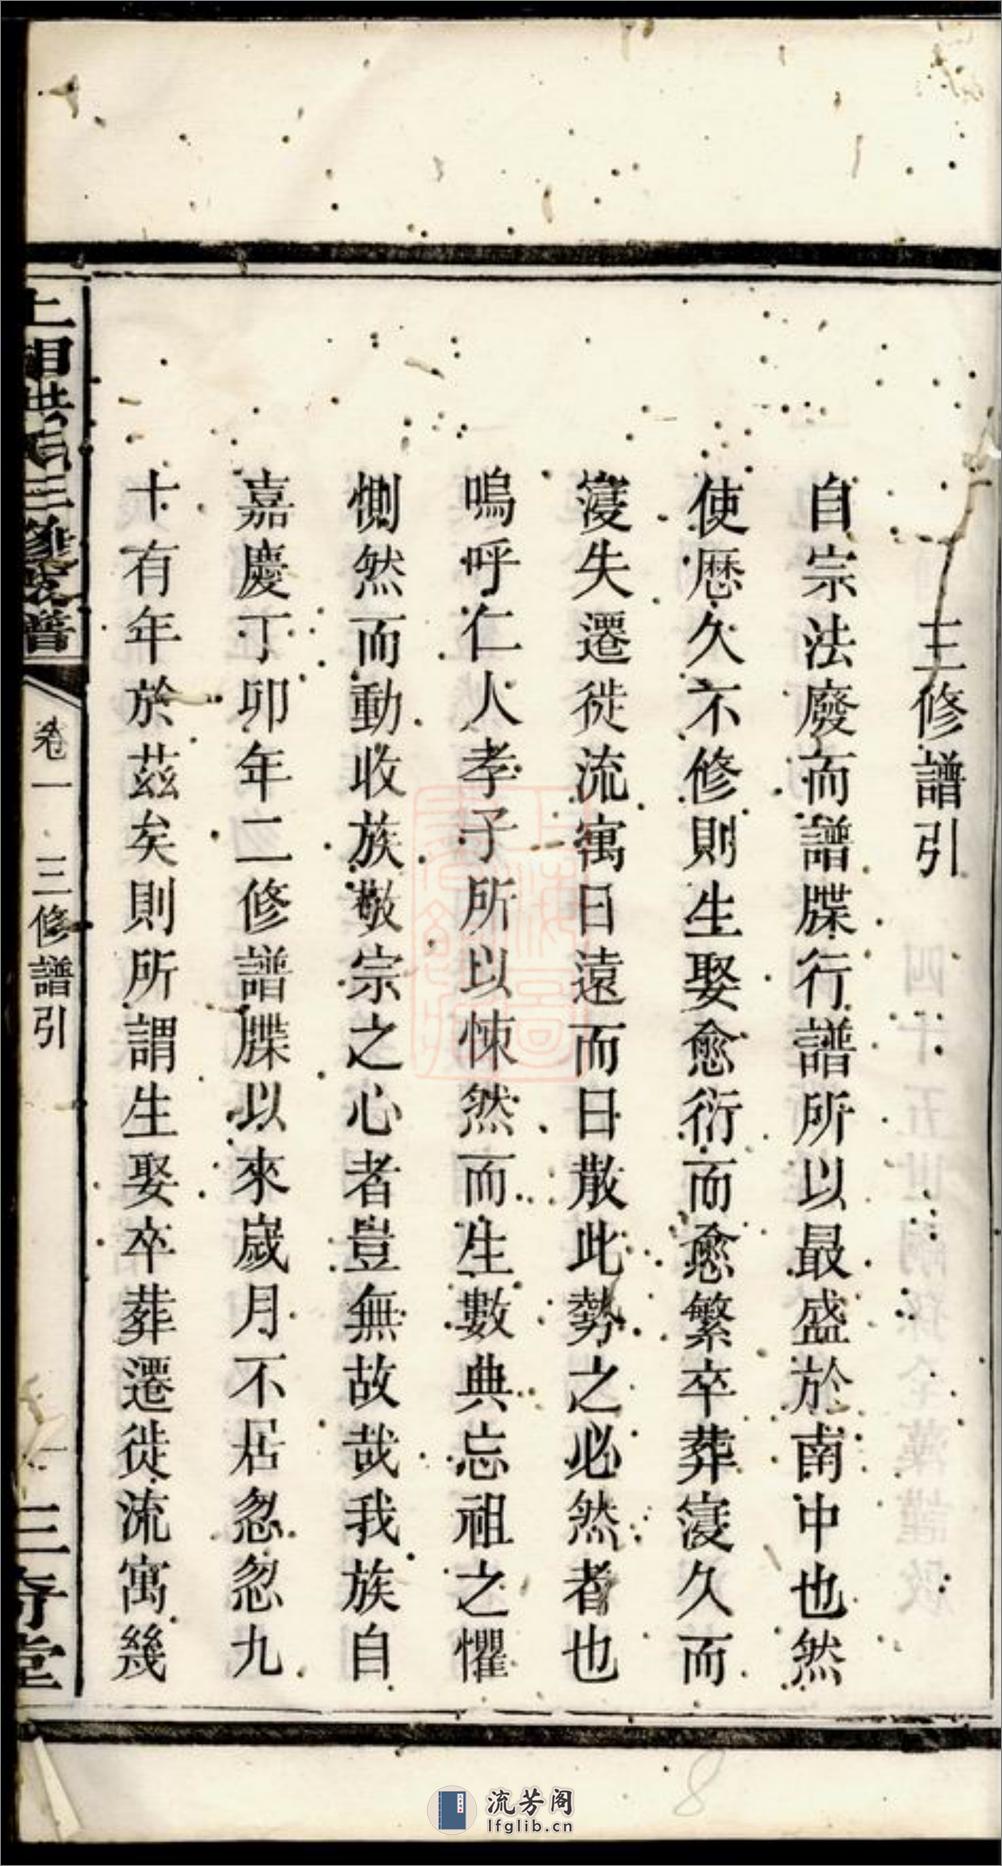 三修譜引
自宗法廢而譜牒行譜所以最盛於南中也然
使歷久不修則生娶愈衍而愈繁卒葬寖久而
寖失遷徙流寓日遠而日散此勢之必然者也
嗚呼仁人孝子所以悚然而生數典忘祖之懼
惻然而動收族敬宗之心者豈無故哉我族自
嘉慶丁卯年二修譜牒以來歲月不居忽忽九
十有年於茲矣則所謂生娶卒葬遷徙流寓幾
三修支譜
卷一 三修譜引
一
三奇堂
8
流芳阁
lfglib.cn